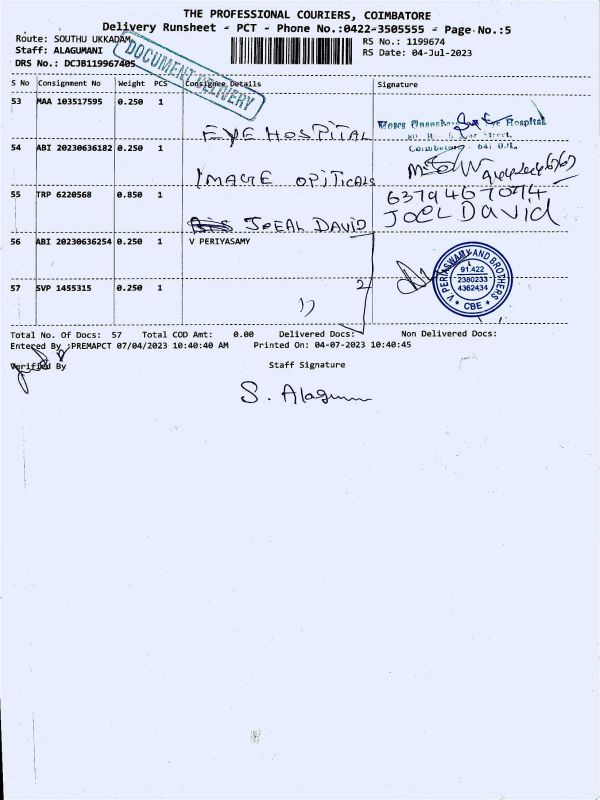 THE PROFESSIONAL COURIERS, COIMBATORE
Delivery Runsheet - PCT - Phone No.:0422-3505555 - Page No.:5
Route: SOUTHU UKKADAM
RS No.: 1199674
Staff: ALAGUMANI
RS Date: 04-Jul-2023
DRS No.: DCJB119967405
DOCUMENT DELIVERY
S No Consignment No Weight PCS Consignee Details Signature
53 MAA 103517595 0.250 1
EYE HOSPITAL
Eye Hospital
54 ABI 20230636182 0.250 1
Coimbatore 641 001.
IMAGE OPITICALS
55 TRP 6220568 0.850 1
6379467074
JOEAL DAVID
JOEL DAVID
56 ABI 20230636254 0.250 1 V PERIYASAMY
V PERIASWAMY AND BROTHERS
91.422
2380233
4362434
* CBE *
57 SVP 1455315 0.250 1
2
Total No. Of Docs: 57 Total COD Amt: 0.00 Delivered Docs: Non Delivered Docs:
Entered By :PREMAPCT 07/04/2023 10:40:40 AM Printed On: 04-07-2023 10:40:45
Verified By Staff Signature
S. Alagumani